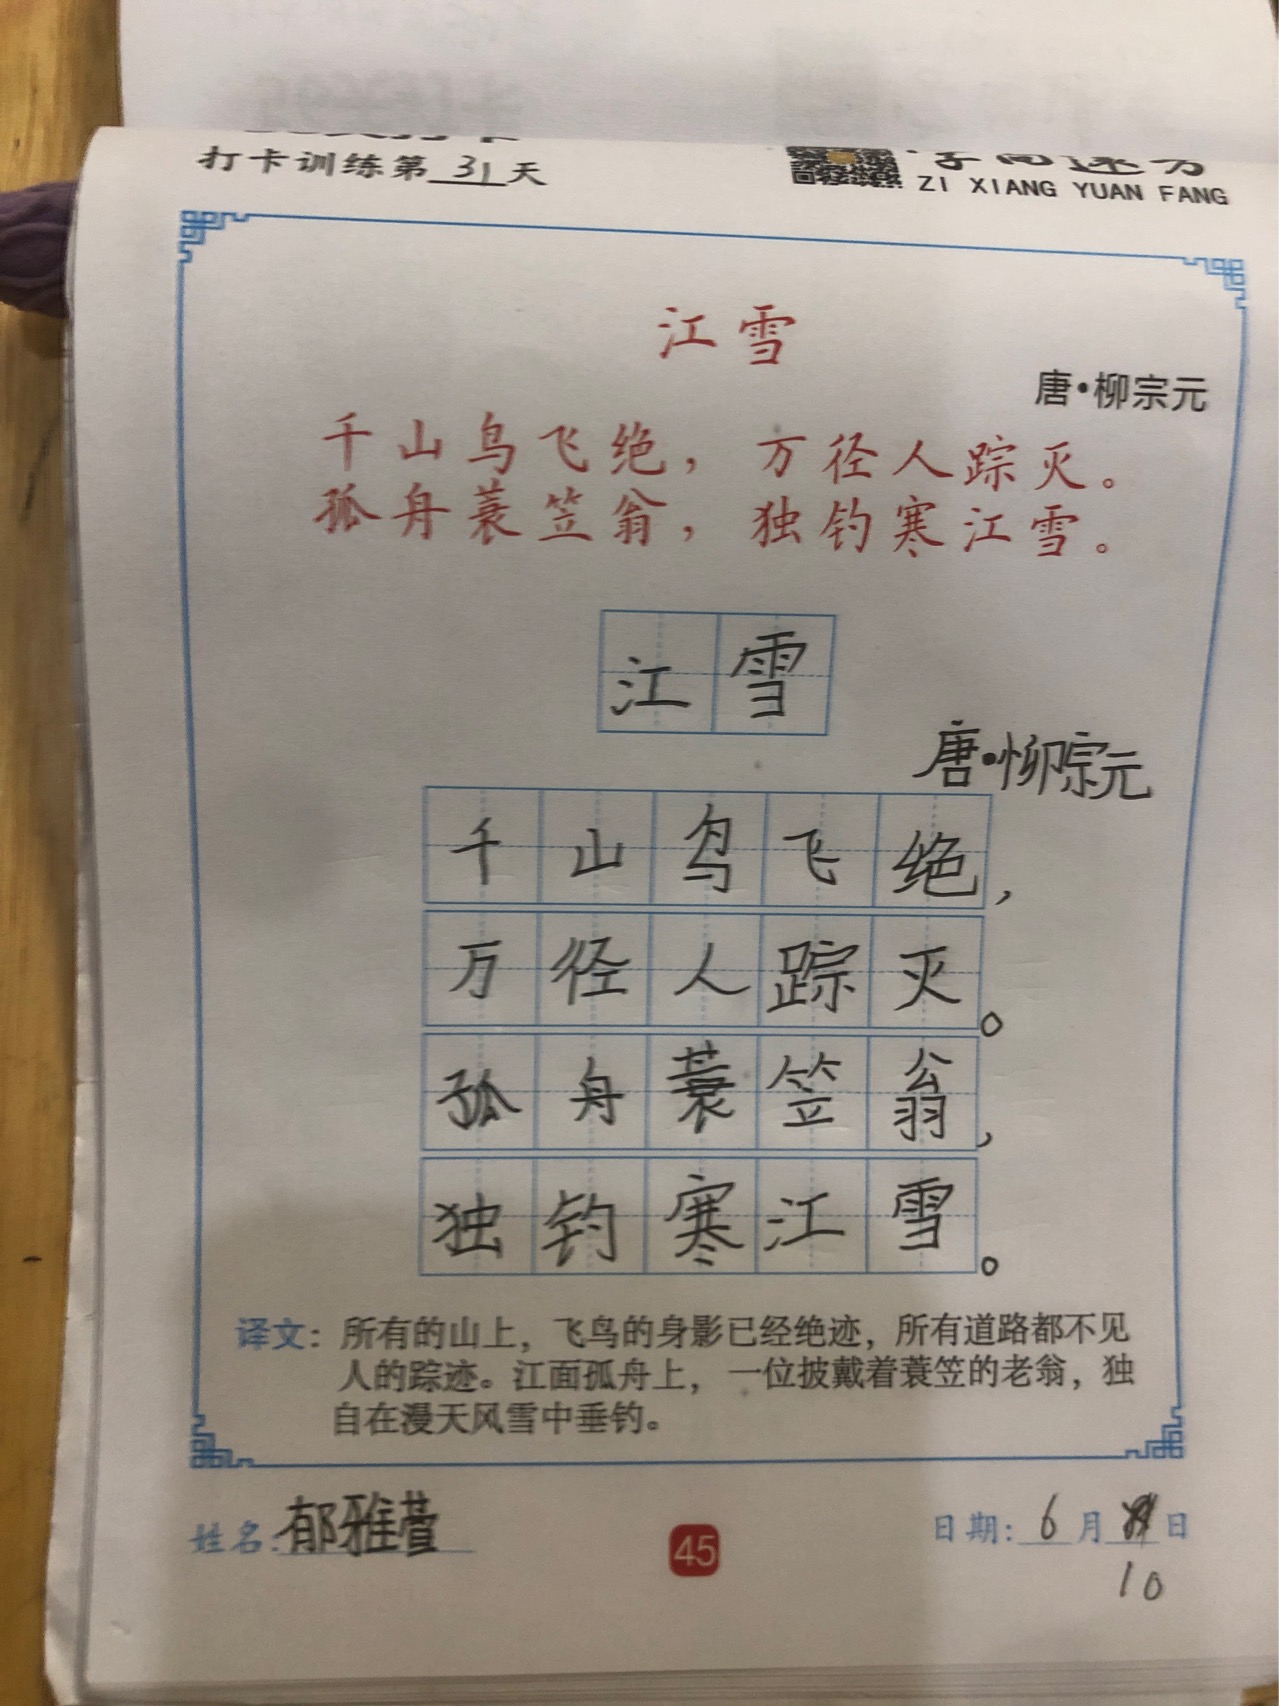 打卡训练第31天
ZI XIANG YUAN FANG
江雪
唐·柳宗元
千山鸟飞绝，万径人踪灭。
孤舟蓑笠翁，独钓寒江雪。
江雪
唐·柳宗元
千山鸟飞绝，
万径人踪灭。
孤舟蓑笠翁，
独钓寒江雪。
译文：所有的山上，飞鸟的身影已经绝迹，所有道路都不见
人的踪迹。江面孤舟上，一位披戴着蓑笠的老翁，独
自在漫天风雪中垂钓。
姓名：郁雅萱
45
日期：6月日
10